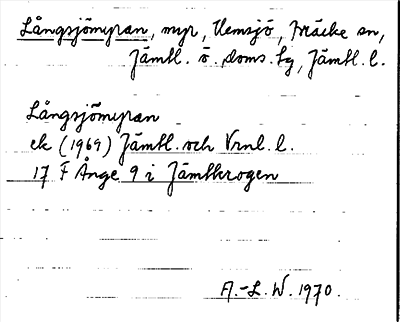 Långsjömyran, myr, Hemsjö, Bräcke sn,
Jämtl. ö. doms. tg, Jämtl. l.
Långsjömyran
ek (1969) Jämtl. och Vrnl. l.
17 F Ånge 9 i Jämtkrogen
A.-L. W. 1970.